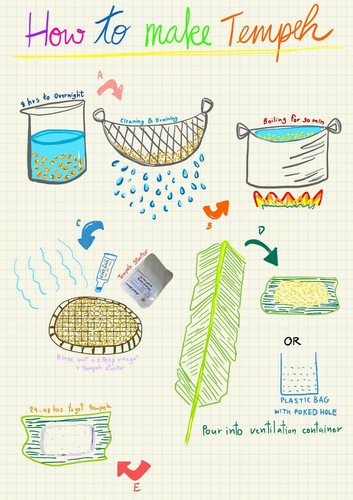 How to make Tempeh
8 hrs to Overnight
A
Cleaning & Draining
Boiling for 30 min
B
C
Tempeh Starter
D
OR
PLASTIC BAG
WITH POKED HOLE
Pour into ventilation container
+ tempeh starter
24-48 hrs to get tempeh
E